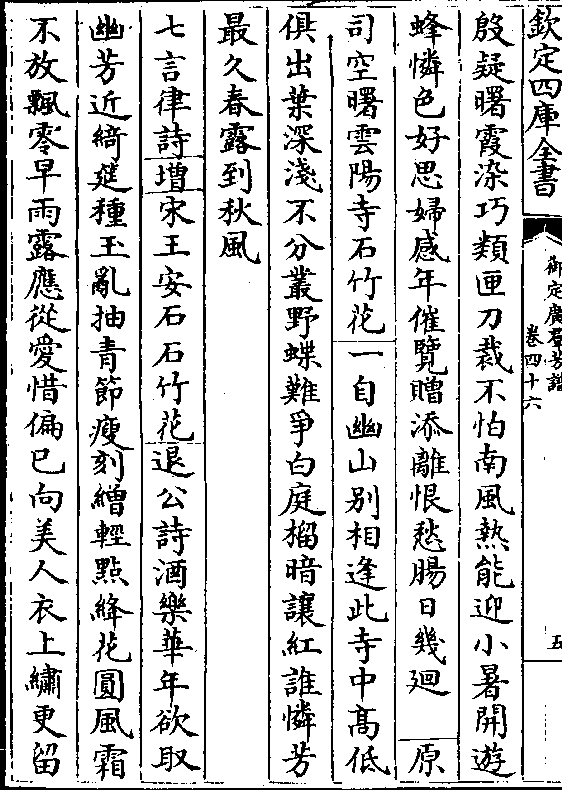 欽定四庫全書
御定廣羣芳譜
卷四十六
五
殷疑曙霞染巧類匣刀裁不怕南風熱能迎小暑開遊
蜂憐色好思婦感年催覽贈添離恨愁腸日幾廻 原
司空曙雲陽寺石竹花 一自幽山別相逢此寺中髙低
俱出葉深淺不分叢野蝶難爭白庭榴暗讓紅誰憐芳
最久春露到秋風
七言律詩 増 宋王安石石竹花 退公詩酒樂華年欲取
幽芳近綺筵種玉亂抽青節瘦刻繒輕點絳花圓風霜
不放飄零早雨露應從愛惜偏已向美人衣上繡更留